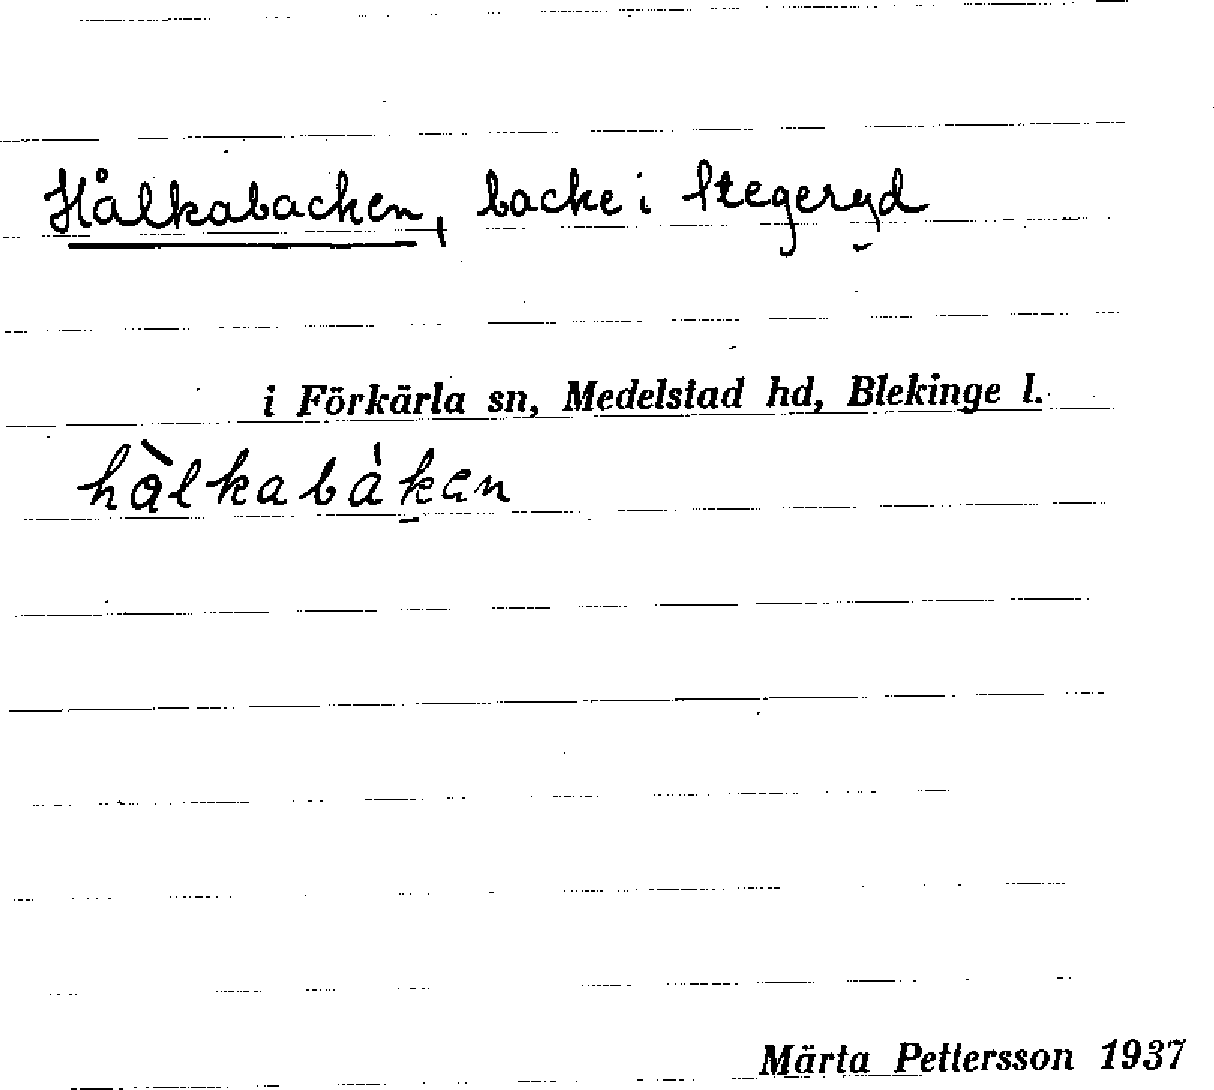 Hålkabacken, backe i Stegeryd
i Förkärla sn, Medelstad hd, Blekinge l.
hàlkabákan
Märta Pettersson 1937